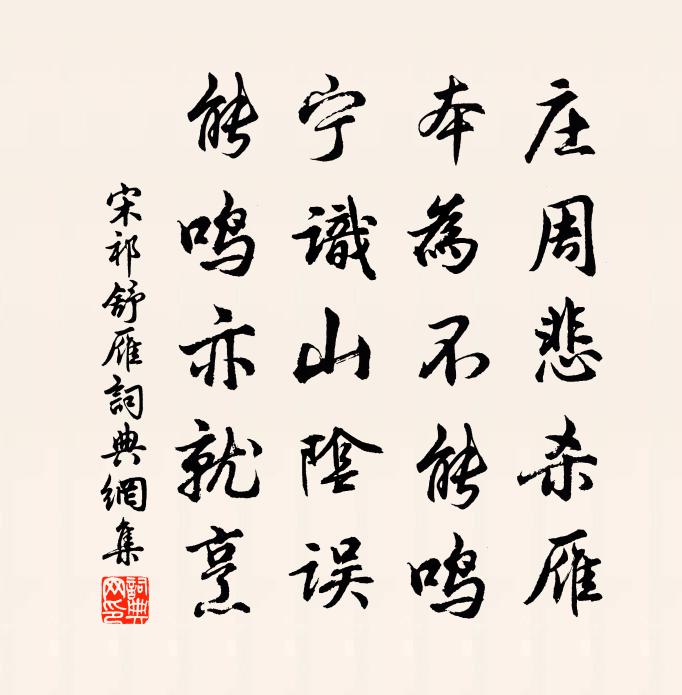 庄周悲杀雁
本為不能鸣
宁識山陰误
能鸣亦就烹
宋祁舒雁詞典網集
詞典网印